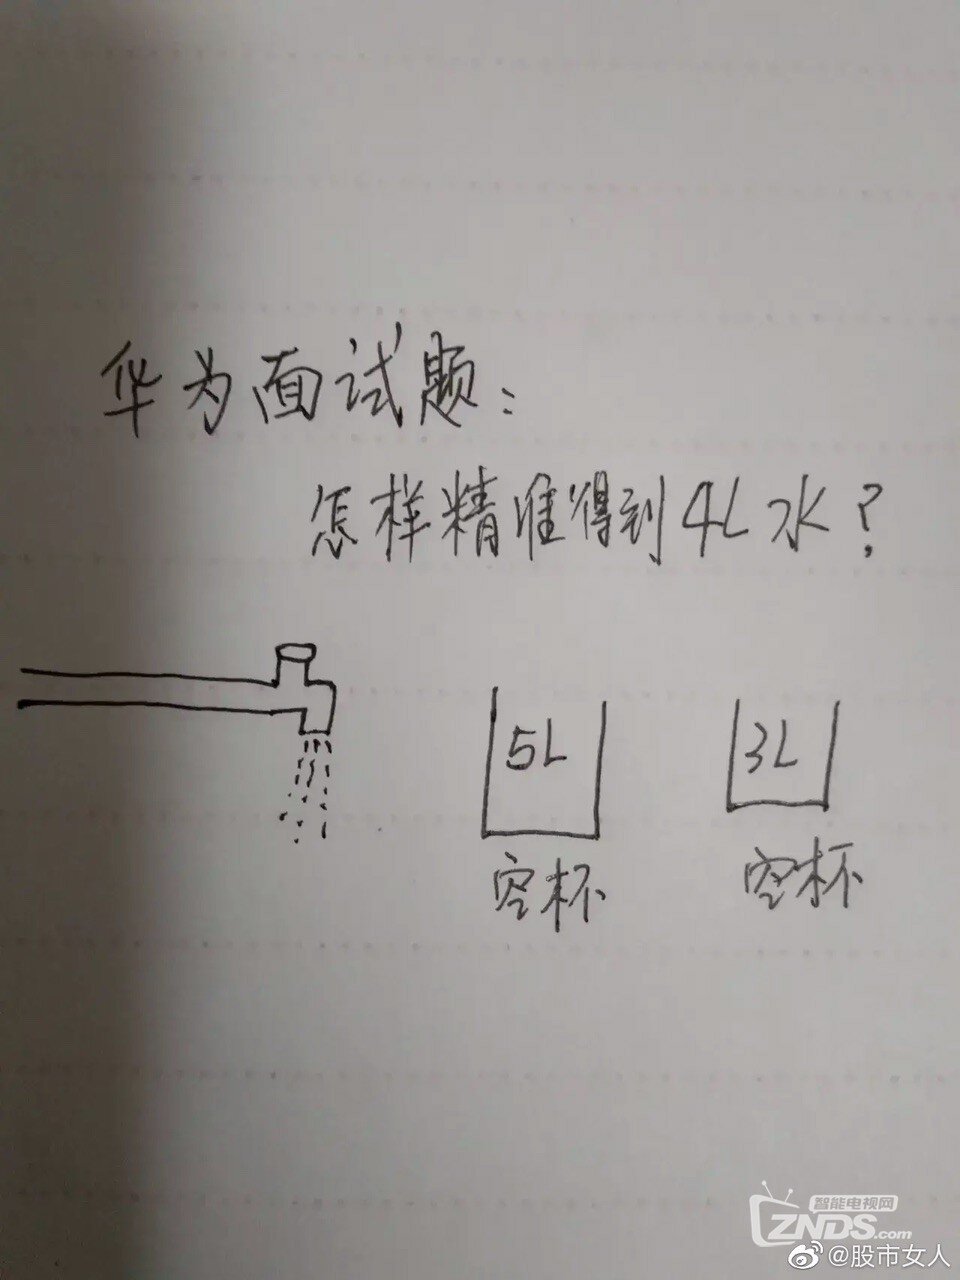 华为面试题：
怎样精准得到4L水？
5L
3L
空杯
空杯
智能电视网
ZNDS.com
@股市女人